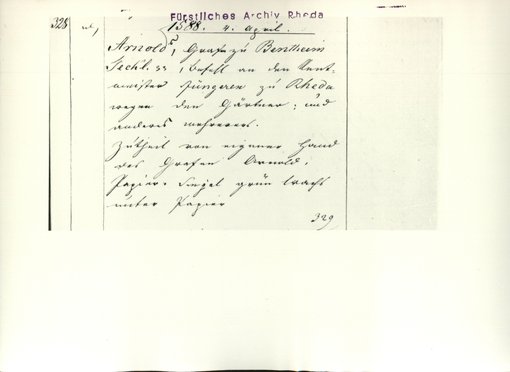 Fürstliches Archiv Rheda
328
1588. 4. April.
Arnold, Graf zu Bentheim
Teckl. , Befehl an den Rent-
meister Jüngeren zu Rheda
wegen den Gärtner; und
anderes mehreres.
Zutheil von eigener Hand
des Grafen Arnold;
Papier. Siegel grün
unter Papier
329